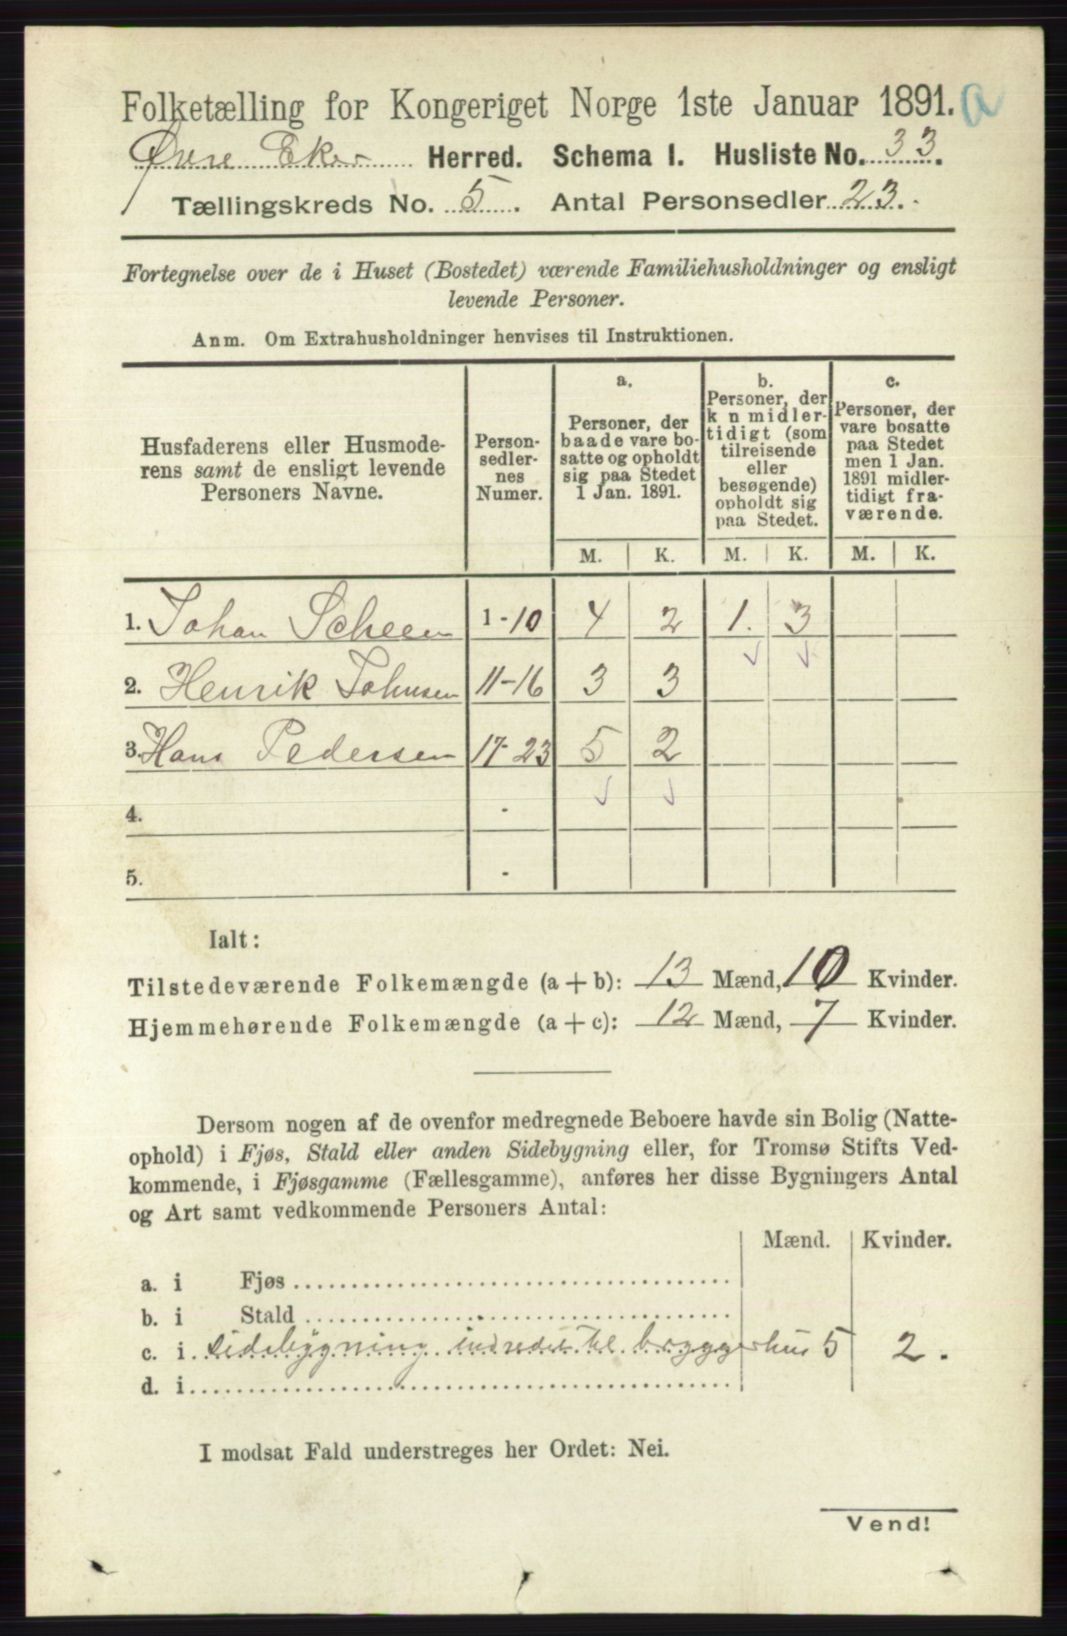 Folketælling for Kongeriget Norge 1ste Januar 1891. a
Øvre Eker Herred. Schema I. Husliste No. 33.
Tællingskreds No. 5. Antal Personsedler 23.
Fortegnelse over de i Huset (Bostedet) værende Familiehusholdninger og ensligt
levende Personer.
Anm. Om Extrahusholdninger henvises til Instruktionen.
Husfaderens eller Husmode-
rens samt de ensligt levende
Personers Navne.
Person-
sedler-
nes
Numer.
a.
Personer, der
baade vare bo-
satte og opholdt
sig paa Stedet
1 Jan. 1891.
b.
Personer, der
k n midler-
tidigt (som
tilreisende
eller
besøgende)
opholdt sig
paa Stedet.
c.
Personer, der
vare bosatte
paa Stedet
men 1 Jan.
1891 midler-
tidigt fra-
værende.
M. K. M. K. M. K.
1. Johan Scheen 1-10 4 2 1. 3
2. Henrik Johnsen 11-16 3 3
3. Hans Pedersen 17-23 5 2
4. -
5. -
Ialt:
Tilstedeværende Folkemængde (a + b): 13 Mænd, 10 Kvinder.
Hjemmehørende Folkemængde (a + c): 12 Mænd, 7 Kvinder.
Dersom nogen af de ovenfor medregnede Beboere havde sin Bolig (Natte-
ophold) i Fjøs, Stald eller anden Sidebygning eller, for Tromsø Stifts Ved-
kommende, i Fjøsgamme (Fællesgamme), anføres her disse Bygningers Antal
og Art samt vedkommende Personers Antal:
Mænd. Kvinder.
a. i Fjøs
b. i Stald
c. i sidebygning indredet til bryggerhus 5 2.
d. i
I modsat Fald understreges her Ordet: Nei.
Vend!